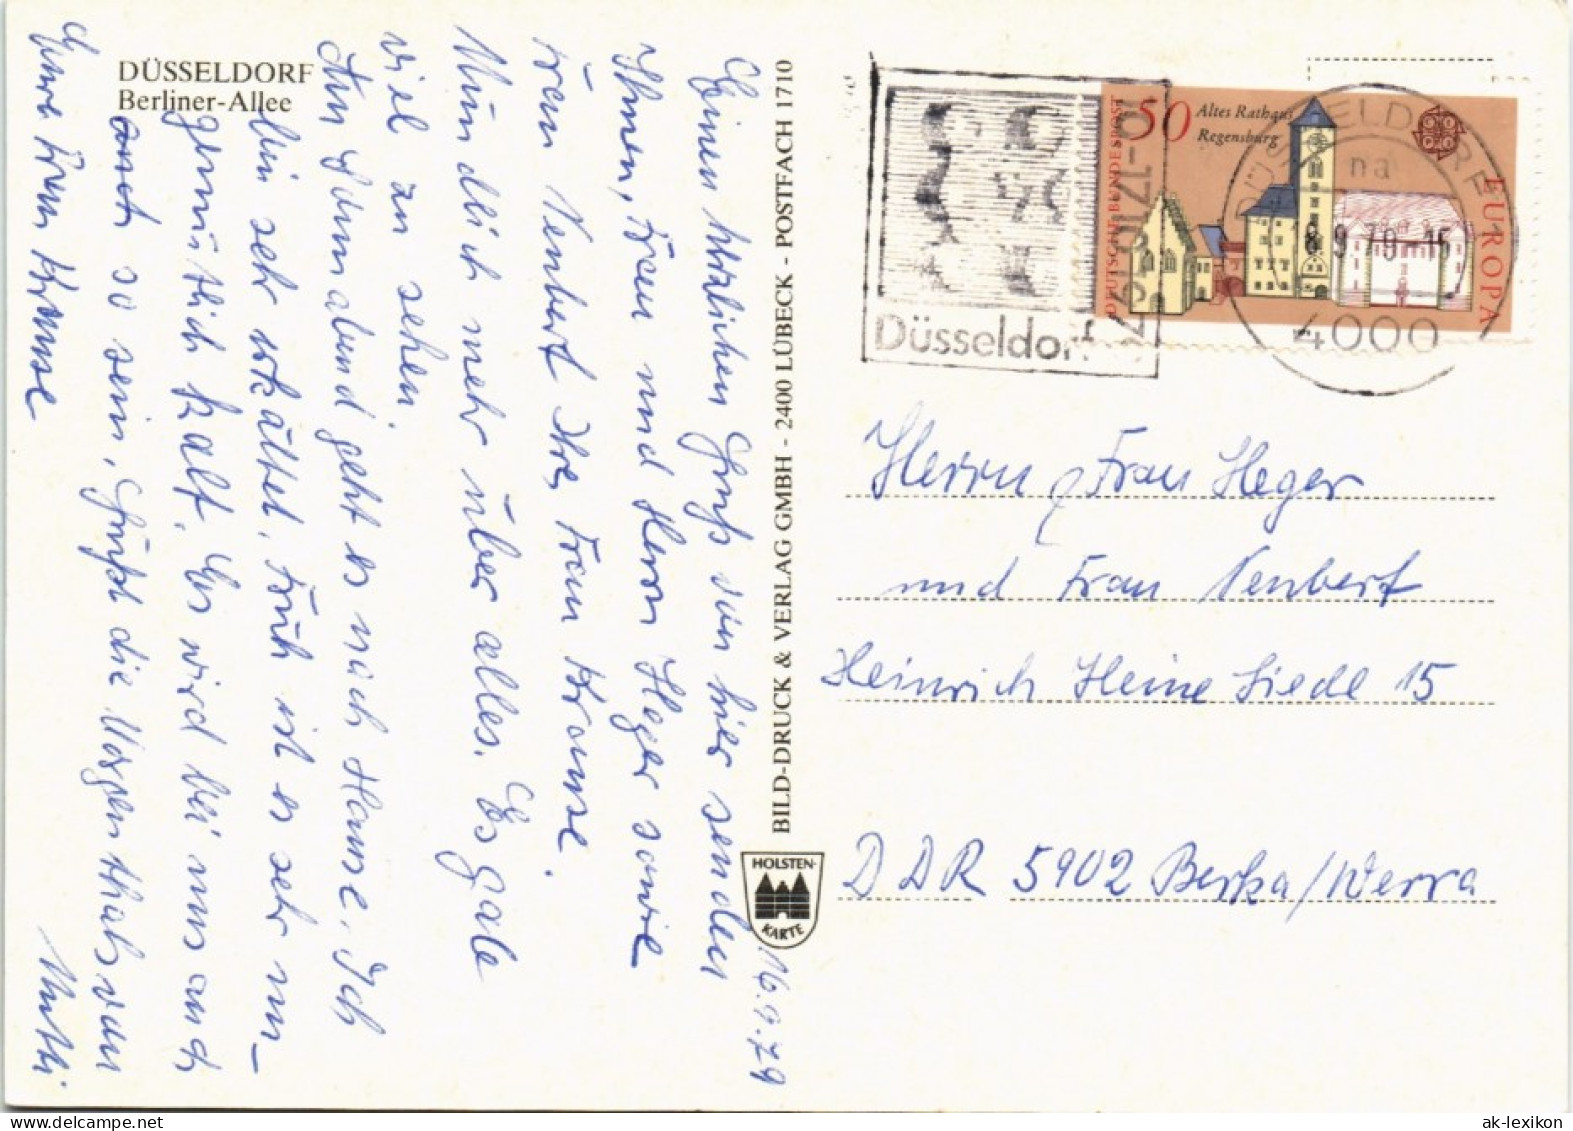 DÜSSELDORF
Berliner-Allee
16.9.79
Einen herzlichen Gruß von hier senden
Ihnen, Frau und Herrn Heger sowie
Frau Neubert Ihre Frau Krause.
Nun dlich mehr über alles. Es gale
viel zu sehen.
Am Sonnabend geht es nach Hause. Ich
bin sehr erkältet, Früh ist es sehr un-
gemütlich kalt. Es wird bei uns auch
so sein, Grüßt die Morgenthals von
Eure Frau Krause Mutti
BILD-DRUCK & VERLAG GMBH - 2400 LÜBECK - POSTFACH 1710
HOLSTEN-
KARTE
Düsseldorf
50
Altes Rathaus
Regensburg
DEUTSCHE BUNDESPOST
EUROPA
DÜSSELDORF 1
na
79-15
4000
Herrn / Frau Heger
und Frau Neubert
Heinrich Heine Siedl 15
DDR 5902 Berka/Werra
ak-lexikon